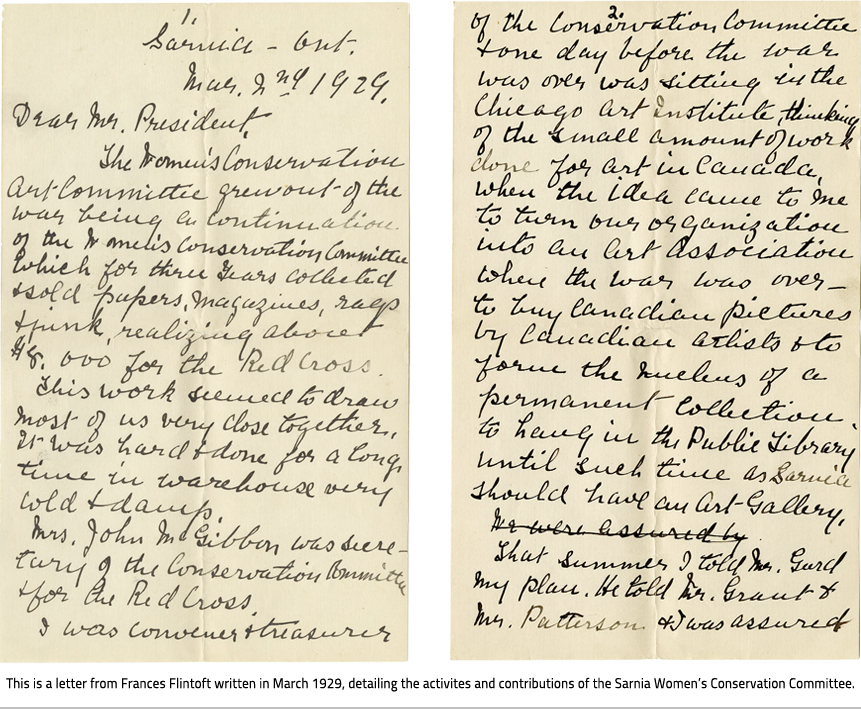 1.
Sarnia - Ont.
Mar. 2nd 1929.
Dear Mr. President,
The Women's Conservation
Art Committee grew out of the
war being a continuation
of the Women's Conservation Committee
which for three years collected
& sold papers, magazines, rags
& junk, realizing about
$8,000 for the Red Cross.
This work seemed to draw
most of us very close together.
It was hard & done for a long
time in warehouse very
cold & damp.
Mrs. John McGibbon was secre-
tary of the Conservation Committee
& for the Red Cross.
I was convener & treasurer
2.
of the Conservation Committee
& one day before the war
was over was sitting in the
Chicago Art Institute, thinking
of the small amount of work
done for art in Canada,
when the idea came to me
to turn our organization
into an Art Association
when the war was over—
to buy Canadian pictures
by Canadian artists & to
form the nucleus of a
permanent collection,
to hang in the Public Library
until such time as Sarnia
should have an Art Gallery.
We were assured by
That summer I told Mr. Gurd
my plan. He told Mr. Grant &
Mr. Patterson & I was assured
This is a letter from Frances Flintoft written in March 1929, detailing the activites and contributions of the Sarnia Women's Conservation Committee.